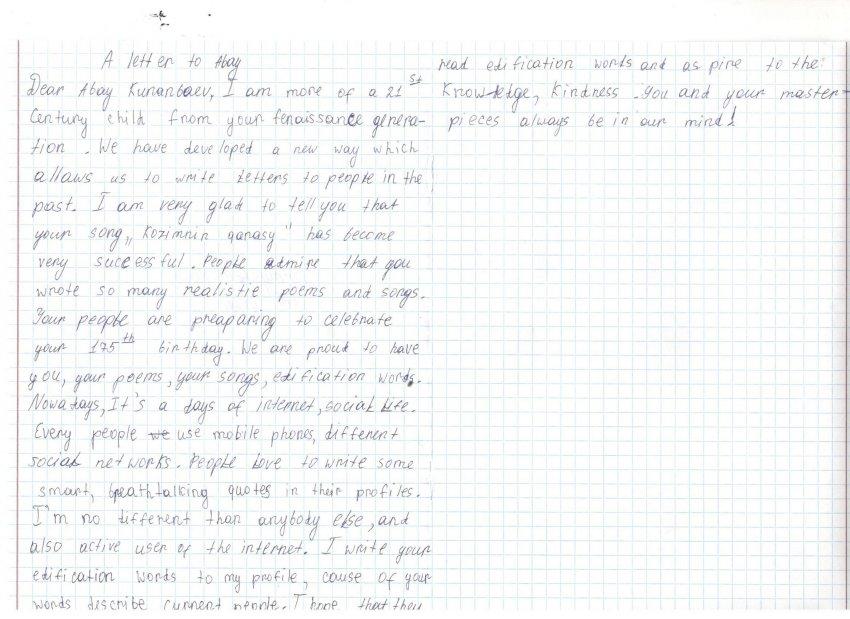 A letter to Abay
Dear Abay Kunanbaev, I am more of a 21st
Century child from your fenaissance genera-
tion. We have developed a new way which
allaws us to write letters to people in the
past. I am very glad to tell you that
your song „Kozimnin qarasy" has become
very successful. People admire that you
wrote so many realistic poems and songs.
Your people are preaparing to celebrate
your 175th birthday. We are proud to have
you, your poems, your songs, edification words.
Nowadays, It's a days of internet, social life.
Every people we use mobile phones, different
social networks. People love to write some
smart, breathtalking quotes in their profiles.
I'm no different than anybody else, and
also active user of the internet. I write your
edification words to my profile, cause of your
words describe current people. I hope that they
read edification words and aspire to the
Knowledge, Kindness. You and your master-
pieces always be in our mind!